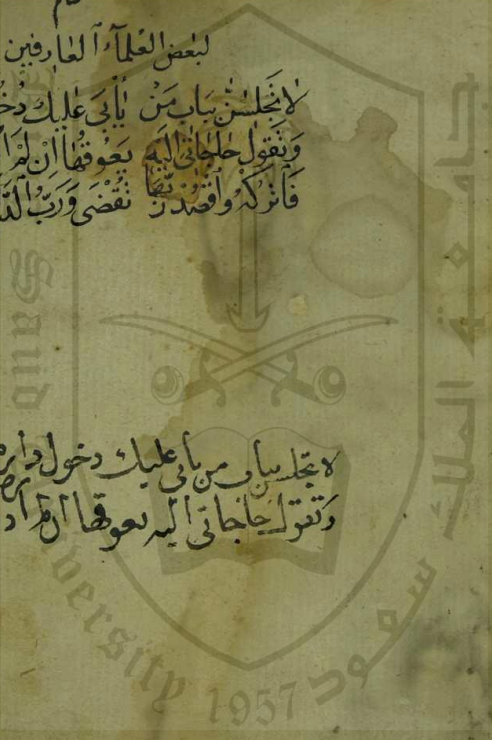 لبعض العلماء العارفين
لا تجلسن بباب من يأبى عليك
وتقول حاجاتي اليه يعوقها ان لم
فاتركه واقصد ربها تقضى ورب
لا تجلسن بباب من يأبى عليك دخول داره
وتقول حاجاتي اليه يعوقها ان لم
جامعة الملك سعود
King Saud University
1957